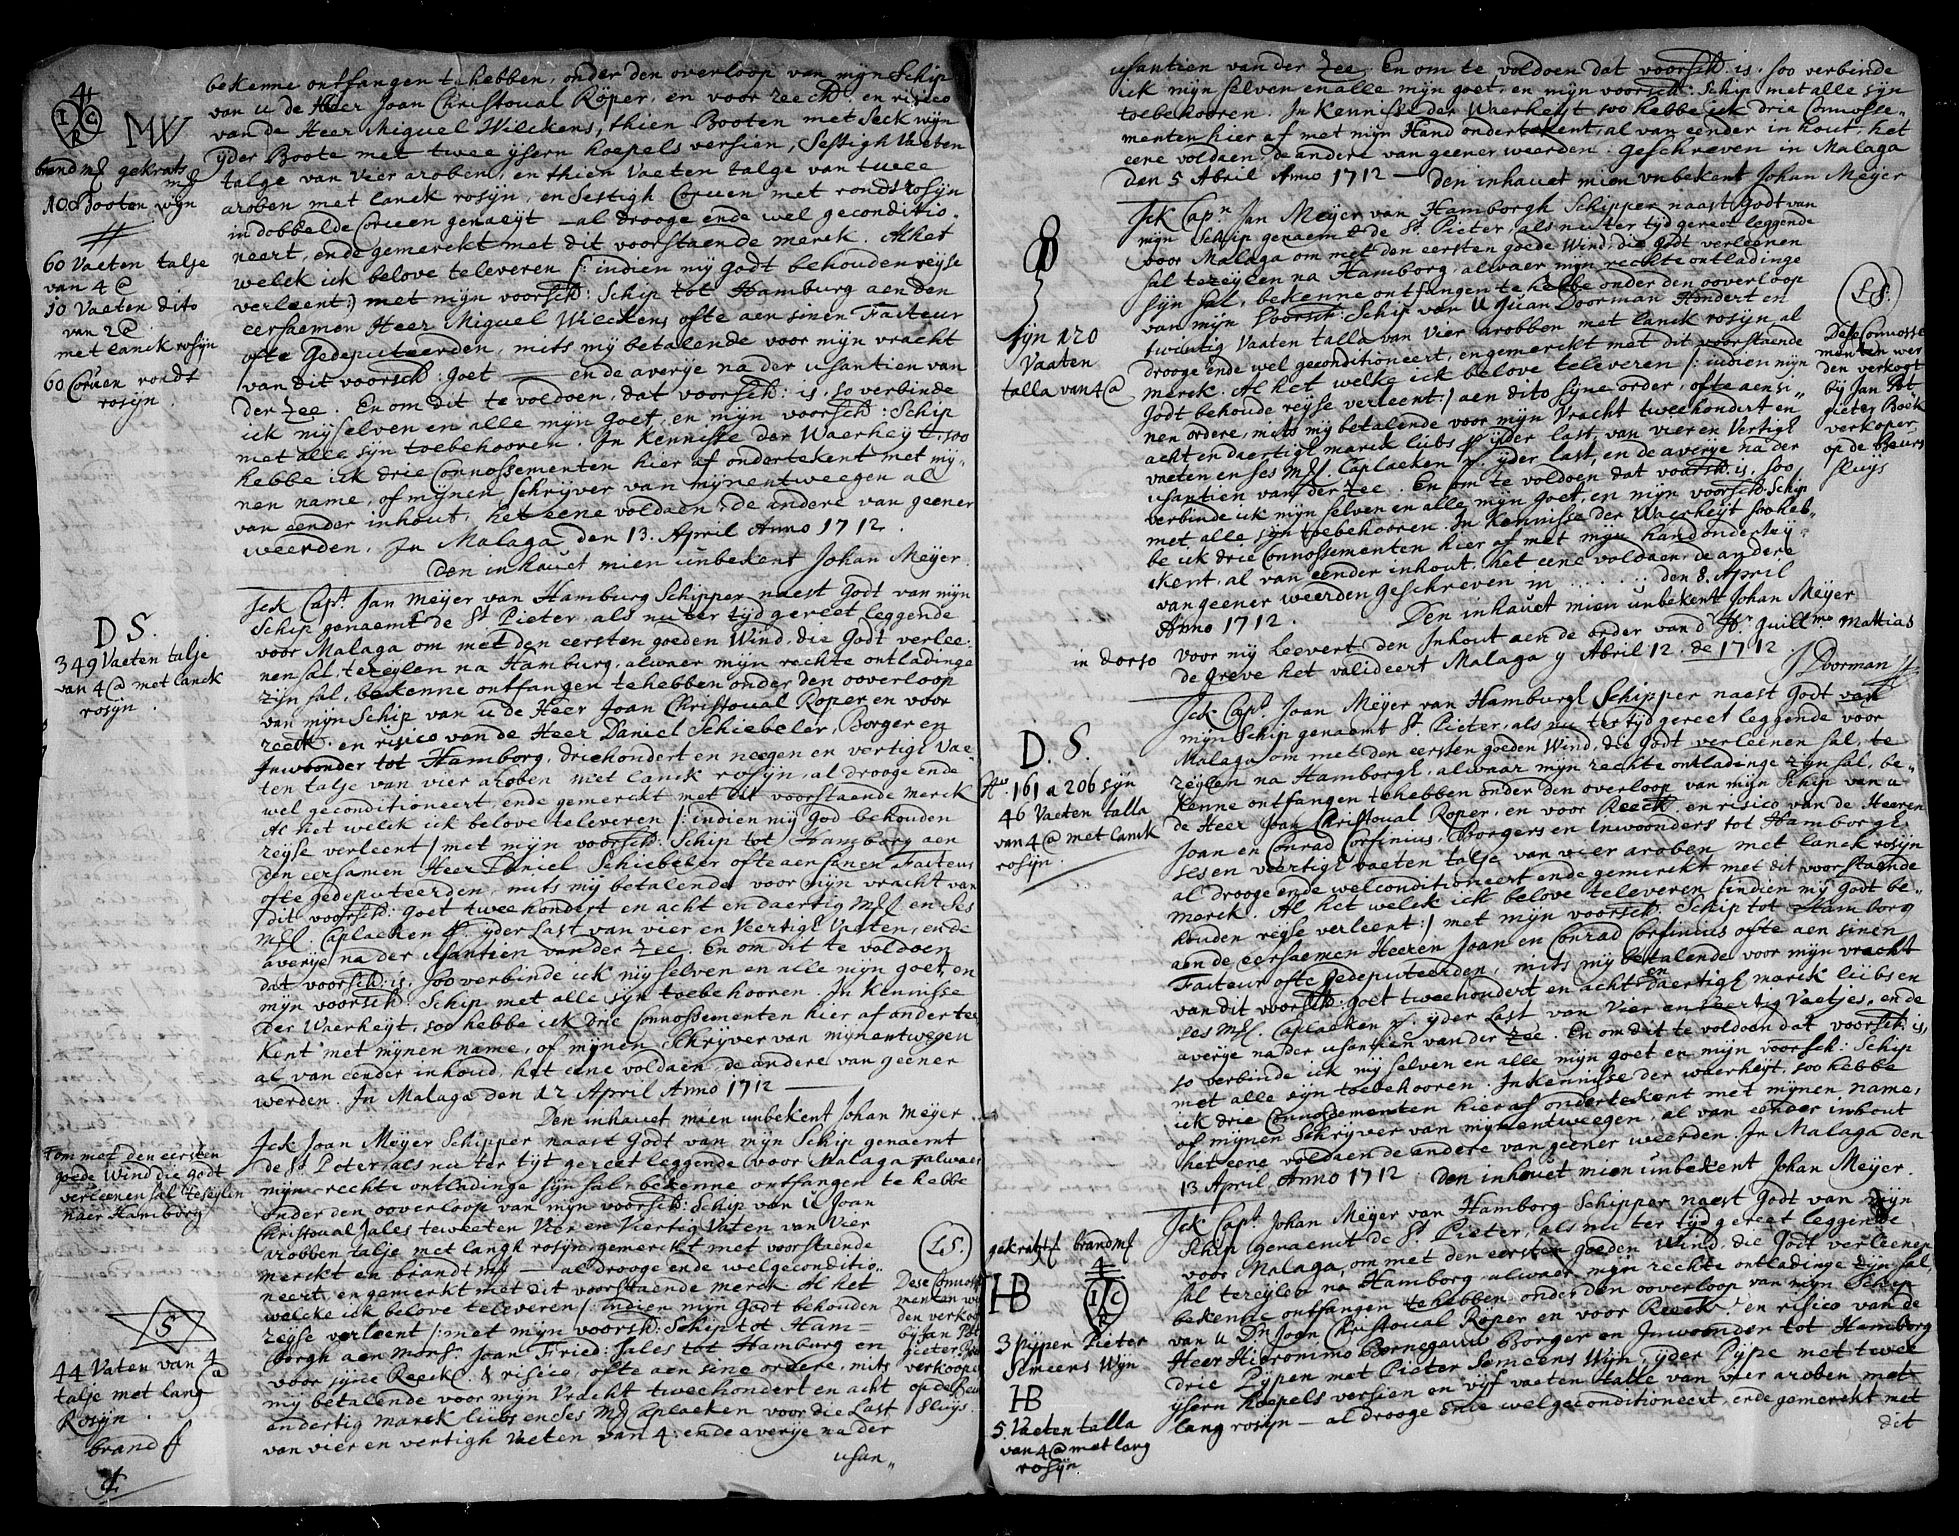 4
I C
R
MW
brandmk gekrats
mk
10 Booten wyn
60 Vaeten talje
van 4 @
10 Vaeten dito
van 2 @
met lanck rosyn
60 Coruen rondt
rosyn
bekenne ontfangen te hebben, onder den overloop van mijn Schip
van u de Heer Joan Christoual Röper, en voor reeck. en risico
van de Heer Miguel Wilckens, thien Booten met Seck wyn
yder Boote met twee ysern hoepels versien, Sestigh Vaeten
talge van vier aroben, en thien Vaeten talge van twee
aroben met lanck rosyn, en Sestigh Coruen met rondt rosyn
in dobbelde Corven genaeyt — al drooge ende wel geconditio„
neert, ende gemerckt met dit voorstaende merck. Al het
welck ick belove te leveren /: indien my godt behouden reyse
verleent :/ met mijn voorsch: Schip tot Hamburg aen den
eersaemen Heer Miguel Wilckens ofte aen sinen Facteur
ofte Gedeputeerden, mits my betalende voor mijn vracht
van dit voorsch: goet —— ende averye na der usantien van
der Zee. En om dit te voldoen, dat voorsch: is, so verbinde
ick mijselven en alle mijn goet, en mijn voorsch: Schip
met alle syn toebehooren. In Kennisse der Waerheyt, soo
hebbe ick drie Connossementen hier af ondertekent met my„
nen name, of mijnen schrijver van mynentweegen al
van eender inhout, het eene voldaen, de andere van geener
weerden. In Malaga den 13. April Anno 1712.
den inhauet mien unbekent Johan Meyer.
D S.
349 Vaeten talje
van 4 @ met lanck
rosyn.
Ick Capt. Jan Meyer van Hamburg Schipper naest Godt van mijn
Schip genaemt de St Pieter, als nu ter tyd gereet leggende
voor Malaga om met den eersten goeden Wind, die Godt verlee„
nen sal, te zeylen na Hamburg, alwaer mijn rechte ontladinge
zijn sal, bekenne ontfangen te hebben onder den ooverloop
van mijn Schip van u de Heer Joan Christoual Roper en voor
reeck. en risico van de Heer Daniel Schiebeler, Borger en
Inwoonder tot Hamborg, driehondert en neegen en vertigh Vae„
ten talje van vier aroben met lanck rosyn, al drooge ende
wel geconditioneert, ende gemerckt met dit voorstaende merck
Al het welck ick belove te leveren /: indien my God behouden
reyse verleent :/ met mijn voorsch: Schip tot Hamborg aen
den eersamen Heer Daniel Schiebeler ofte aen sinen Facteur
ofte gedeputeerden, mits my betalende voor mijn vracht van
dit voorsch: goet tweehondert en acht en daertig Mk en Ses
Mk. Caplacken p. yder Last van vier en Veertigh Vaeten, ende
averye na der usantien van der Zee. En om dit te voldoen
dat voorsch: is, soo verbinde ick mij selven en alle mijn goet, en
mijn voorsch. Schip met alle syn toebehooren. In Kennisse
der Waerheyt, soo hebbe ick drie Connossementen hier af onderte„
Kent met mijnen name, of mijnen Schrijver van mijnentwegen
al van eender inhoud, het eene voldaen, de andere van geener
werden. In Malaga den 12 April Anno 1712 ——
Den inhauet mien unbekent Johan Meyer
om met den eersten
goede Wind die godt
verleenen sal te seylen
naer Hamborg
S
44 Vaten van 4 @
talje met lang
Rosyn.
brand
Ick Joan Meyer Schipper naast Godt van mijn Schip genaemt
de St Pieter, als nu ter tijt gereet leggende voor Malaga alwaer
mijn rechte ontladinge syn sal bekenne ontfangen te hebbe
onder den ooverloop van mijn voorsch: Schip van U Joan
Christoual Jales te weeten Vier en Viertig Vaten van Vier
arobben talje met langh rosyn, gemerckt met voorstaende
merckt en brandt mk — al drooge ende wel geconditio„
neert, en gemerckt met dit voorstaende merck. Al het
welcke ick belove te leveren /: indien mijn Godt behouden
reyse verleent :/ met mijn voorsch: Schip tot Ham=
borgh aen Mons. Joan Fried: Jales tot Hamburg en
voor syne Reeck. & risico, ofte aen sine ordere, mits
my betalende voor mijn Vracht tweehondert en acht
endertig marck lübs en Ses Mk Caplacken voor die Last
van vier en vertigh Vaeten van 4: ende averye na der
usan„
LS.
Dese Connosse
menten wer
den verkogt
by Jan Pot
pieter Boek
verkooper
op de Beurs
Sluys.
usantien van der Zee. En om te voldoen dat voorsch. is, soo verbinde
ick mijn selven en alle mijn goet, en mijn voorsch: Schip met alle syn
toebehooren. In Kennisse der Waerheyt soo hebbe ick drie Connosse„
menten hier af met mijn Hand ondertekent, al van eender inhout, het
eene voldaen, de andere van geener weerden. Geschreven in Malaga
den 5 Abril Anno 1712 — den inhauet mien unbekent Johan Meyer
syn 120
Vaeten
talla van 4 @
Ick Capn Jan Meyer van Hamborgh Schipper naast Godt van
mijn Schip genaemd de St. Pieter, als nu ter tyd gereet leggende
voor Malaga om met den eersten goede Wind, die Godt verleenen
sal te zeylen na Hamborg, alwaer mijn rechte ontladinge
syn sal, bekenne ontfangen te hebbe onder den ooverloop
van mijn Voorsch: Schip van U Guan Doorman Hondert en
twintig Vaaten talla van Vier arobben met lanck rosyn, al
drooge ende wel geconditioneert, en gemerckt met dit voorstaende
merck. Al het welke ick belove te leveren /: indien mijn
Godt behoude reyse verleent :/ aen dito syne order, ofte aen si„
nen ordere, mits my betalende voor mijn Vracht tweehondert en
acht en daertigl marck lübs p yder last, van vier en Vertigl
vaeten en ses Mk. Caplacken p. yder last, en de averye na der
usantien van der Zee. En om te voldoen dat voorsch. is, soo
verbinde ick mijn selven en alle mijn goet, en mijn voorsch. Schip
met alle syn toebehooren. In Kennisse der Waerheyt soo heb„
be ick drie Connossementen hier af met mijn hand ondertey„
kent, al van eender inhout, het eene voldaen, de andere
van geener weerden Geschreven in ...... den 8. April
Anno 1712. Den inhauet mien unbekent Johan Meyer
LS.
Dese Connosse
menten wer
den verkogt
by Jan Pot
pieter Boek
verkoper
op de Beurs
sluys
in dorso
voor mij leevert den Inhout aen de order van dHr Guillmo Mattias
de Greve het valideert Malaga y Abril 12. de 1712.
J Doorman
D. S.
No. 161 a 206 syn
46 Vaeten talla
van 4 @ met lanck
rosyn.
Ick Capt. Joan Meyer van Hamburgl Schipper naest Godt van
mijn Schip genaemt St. Pieter, als nu ter tyd gereet leggende voor
Malaga om met den eersten goeden Wind, die Godt verleenen sal, te
zeylen na Hamborgl, alwaar mijn rechte ontladinge zyn sal, be„
kenne ontfangen te hebben onder den overloop van mijn Schip van u
de Heer Joan Christoual Roper, en voor Reeck. en risico van de Heeren
Joan en Conrad Corfinius, Borgers en Inwoonders tot Hamborg
ses en veertigl vaeten talje van vier aroben met lanck rosyn
al drooge ende wel conditioneert ende gemerkt met dit voorstaende
merck. Al het welck ick belove te leveren /: indien my Godt be„
houden reyse verleent :/ met mijn voorsch. Schip tot Hamborg
aen de eersaemen Heeren Joan en Conrad Corfinius ofte aen sinen
Facteur ofte gedeputeerden, mits my betalende voor mijn vracht
van dit voorsch: goet tweehondert en acht en daertigl marck lübs en
ses Mk. Caplacken p. yder Last van Vier en Veertig Vaetjes, ende
averye na der usantien van der Zee. En om dit te voldoen dat voorsch is,
so verbinde ick my selven en alle mijn goet en mijn voorsch: Schip
met alle syn toebehooren. In Kennisse der waerheyt, soo hebbe
ick drie Connossementen hier af ondertekent met mijnen name,
of mijnen Schrijver van mijnentweegen, al van eender inhout
het eene voldaen de andere van geener weerden. In Malaga den
13 April Anno 1712. Den inhauet mien unbekent Johan Meyer.
gekratst brandmk
HB
4
I C
R
3 pijpen Pieter
Semeens Wyn
HB
5. Vaeten talla
van 4 @ met lang
rosyn
Ick Capt. Johan Meyer van Hamborg Schipper naest Godt van mijn
Schip genaemt de St. Pieter, als nu ter tyd gereet leggende
voor Malaga, om met den eersten goeden Wind, die Godt verleenen
sal te zeylen na Hamborg, alwaar mijn rechte ontladinge zyn sal,
bekenne ontfangen te hebben onder den overloop van mijn Schip
van u Dn Joan Christoual Röper en voor Reeck. en risico van de
Heer Hieronimo Bornegauw Borger en Inwoonder tot Hamborg
drie Pypen met Pieter Semeens Wyn, yder Pype met twee
ysern hoepels versien en vyf vaeten talle van vier aroben met
lang rosyn — al drooge ende wel geconditioneert, ende gemerckt met
dit